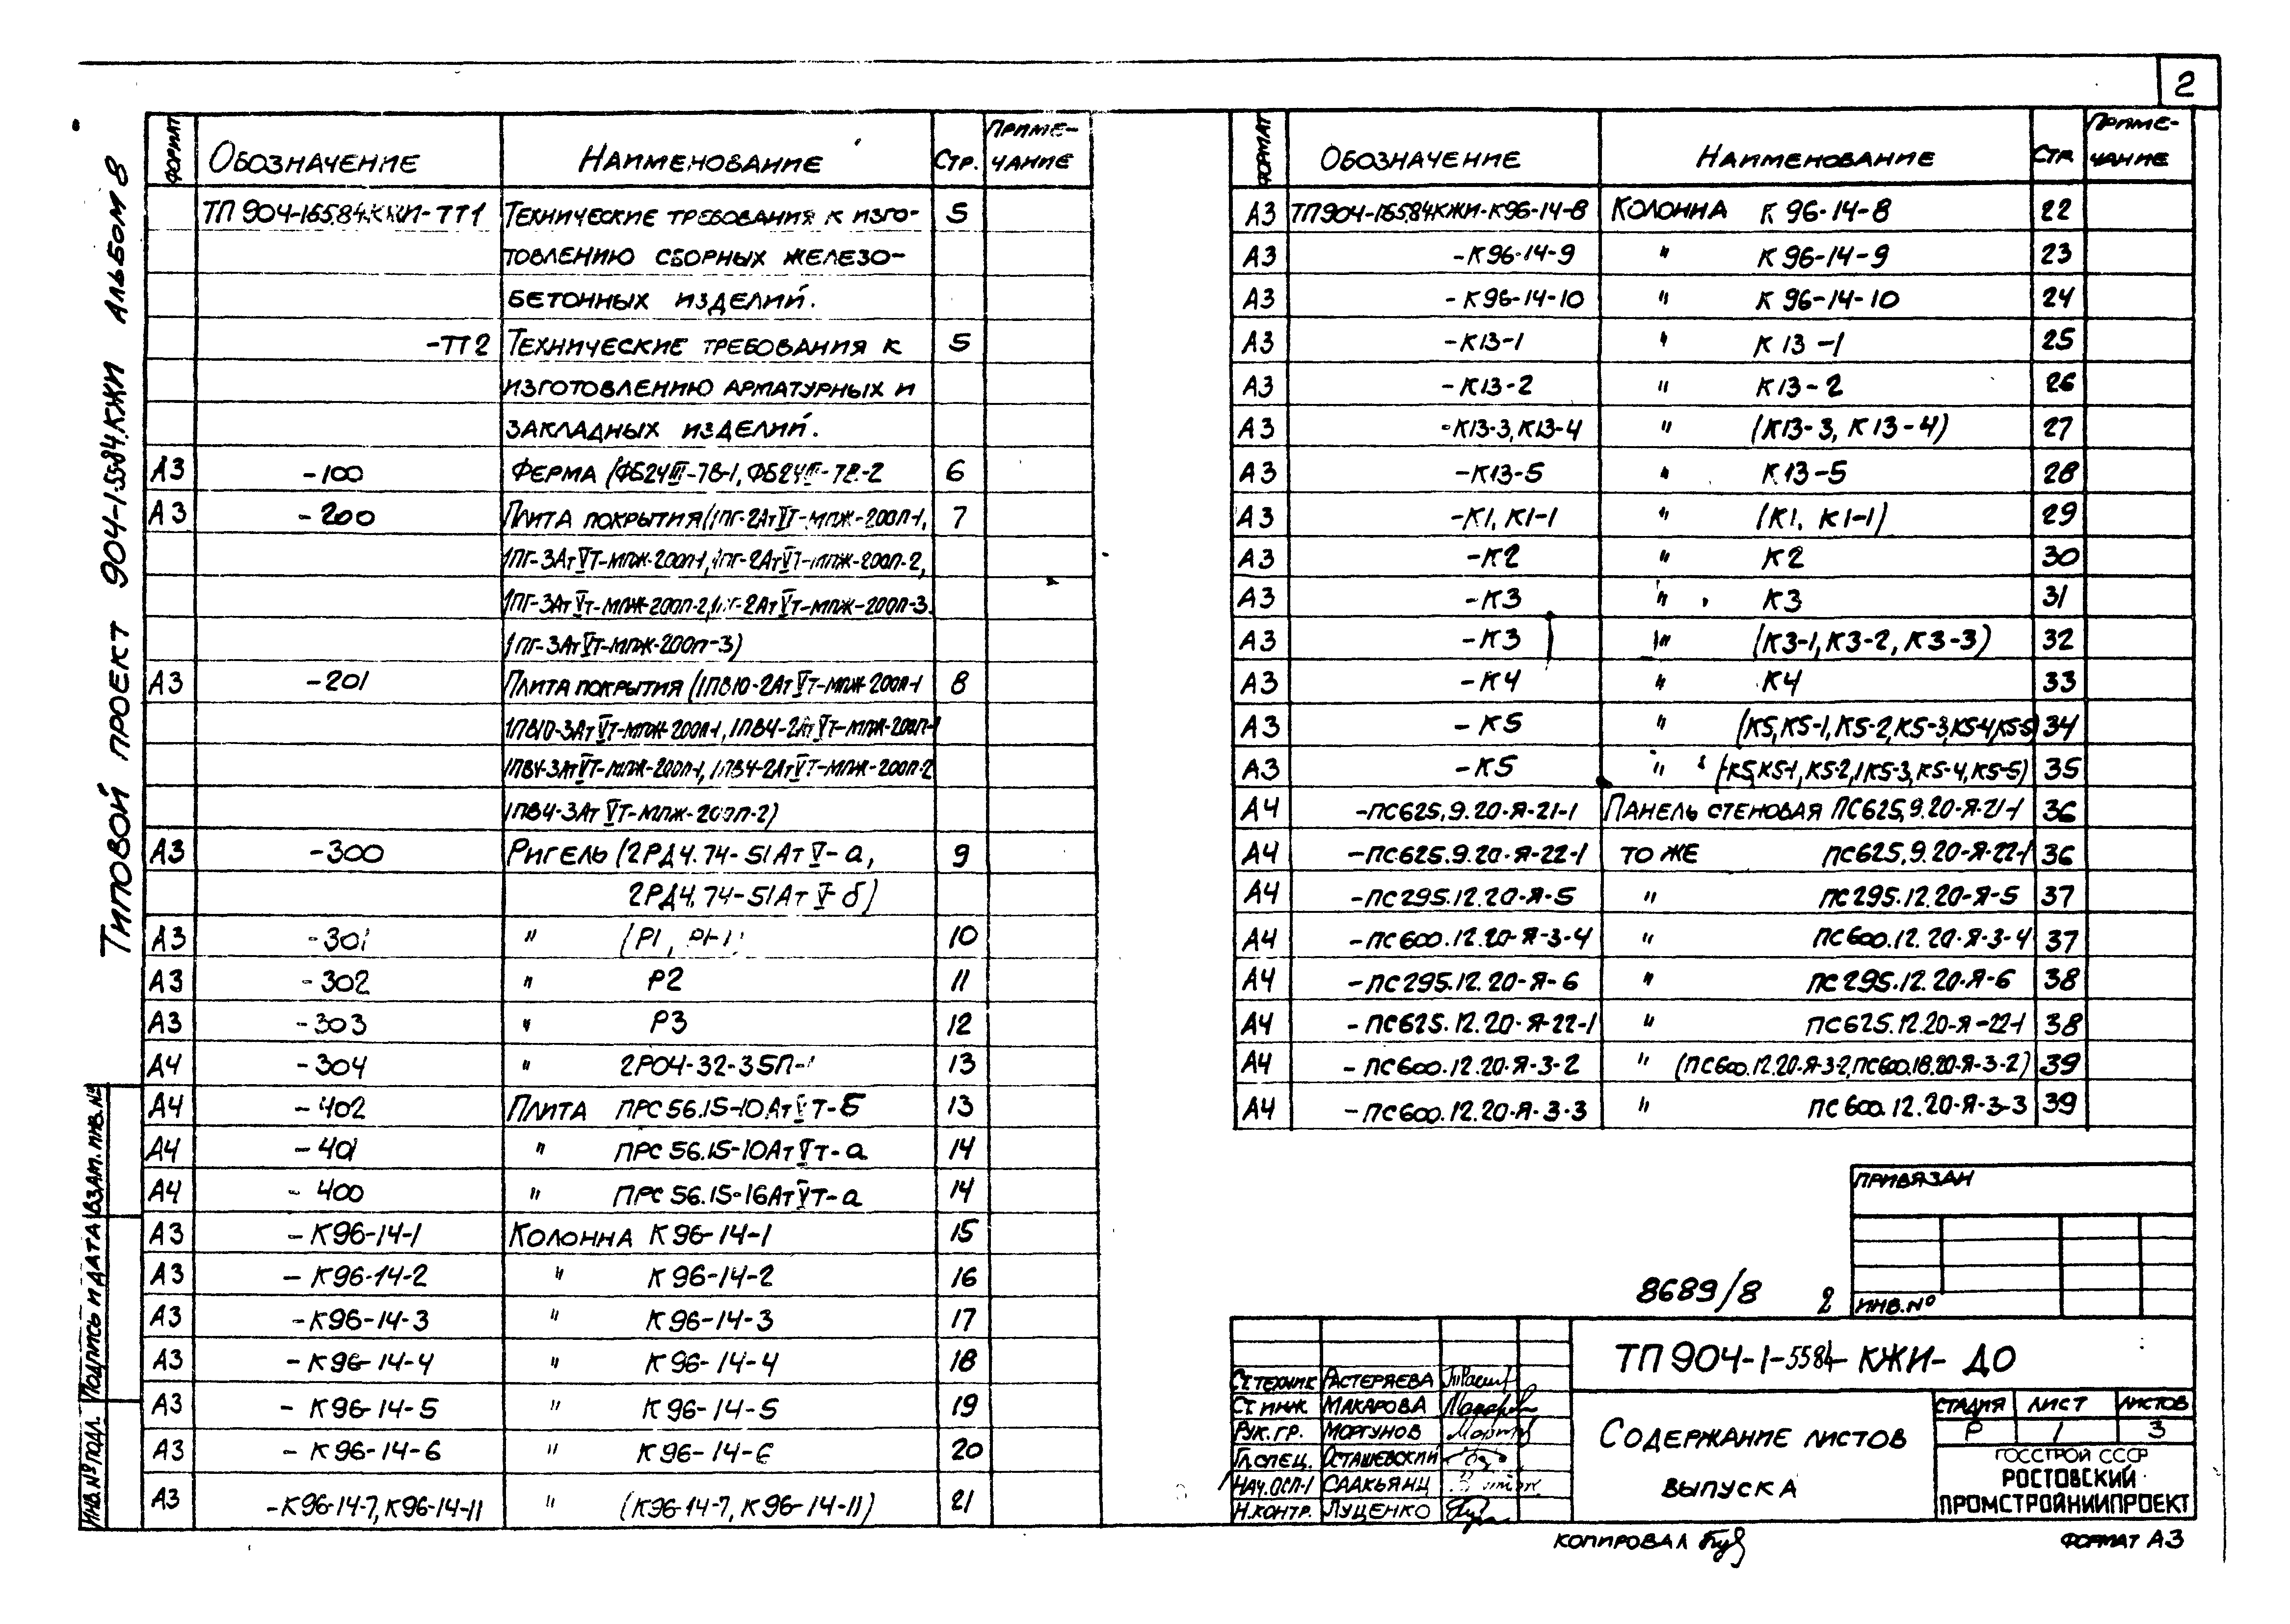 2
Типовой проект 904-1-55.84.КЖИ Альбом 8
Формат Обозначение Наименование Стр. Примечание
ТП 904-1-55.84.КЖИ-ТТ1 Технические требования к изго- 5
товлению сборных железо-
бетонных изделий.
-ТТ2 Технические требования к 5
изготовлению арматурных и
закладных изделий.
А3 -100 Ферма (ФБ24III-7В-1, ФБ24III-7В-2 6
А3 -200 Плита покрытия (1ПГ-2АтVТ-МПЖ-200П-1, 7
1ПГ-3АтVТ-МПЖ-200П-1, 1ПГ-2АтVТ-МПЖ-200П-2,
1ПГ-3АтVТ-МПЖ-200П-2, 1ПГ-2АтVТ-МПЖ-200П-3.
1ПГ-3АтVТ-МПЖ-200П-3)
А3 -201 Плита покрытия (1ПВ10-2АтVТ-МПЖ-200П-1 8
1ПВ10-3АтVТ-МПЖ-200П-1, 1ПВ4-2АтVТ-МПЖ-200П-1
1ПВ4-3АтVТ-МПЖ-200П-1, 1ПВ4-2АтVТ-МПЖ-200П-2
1ПВ4-3АтVТ-МПЖ-200П-2)
А3 -300 Ригель (2РД4.74-51АтV-а, 9
2РД4.74-51АтV-б)
А3 -301 " (Р1, Р1-1) 10
А3 -302 " Р2 11
А3 -303 " Р3 12
А4 -304 " 2РО4-32-35П-1 13
А4 -402 Плита ПРС56.15-10АтVТ-Б 13
А4 -401 " ПРС56.15-10АтVТ-а 14
А4 -400 " ПРС56.15-16АтVТ-а 14
А3 -К96-14-1 Колонна К96-14-1 15
А3 -К96-14-2 " К96-14-2 16
А3 -К96-14-3 " К96-14-3 17
А3 -К96-14-4 " К96-14-4 18
А3 -К96-14-5 " К96-14-5 19
А3 -К96-14-6 " К96-14-6 20
А3 -К96-14-7, К96-14-11 " (К96-14-7, К96-14-11) 21
Инв.№подл. Подпись и дата Взам.инв.№
Формат Обозначение Наименование Стр Примечание
А3 ТП904-1-55.84КЖИ-К96-14-8 Колонна К96-14-8 22
А3 -К96-14-9 " К96-14-9 23
А3 -К96-14-10 " К96-14-10 24
А3 -К13-1 " К13-1 25
А3 -К13-2 " К13-2 26
А3 -К13-3, К13-4 " (К13-3, К13-4) 27
А3 -К13-5 " К13-5 28
А3 -К1, К1-1 " (К1, К1-1) 29
А3 -К2 " К2 30
А3 -К3 " К3 31
А3 -К3 " (К3-1, К3-2, К3-3) 32
А3 -К4 " К4 33
А3 -К5 " (К5, К5-1, К5-2, К5-3, К5-4, К5-5) 34
А3 -К5 " (К5, К5-1, К5-2, К5-3, К5-4, К5-5) 35
А4 -ПС625,9.20-Я-21-1 Панель стеновая ПС625,9.20-Я-21-1 36
А4 -ПС625.9.20-Я-22-1 то же ПС625,9.20-Я-22-1 36
А4 -ПС295.12.20-Я-5 " ПС295.12.20-Я-5 37
А4 -ПС600.12.20-Я-3-4 " ПС600.12.20-Я-3-4 37
А4 -ПС295.12.20-Я-6 " ПС295.12.20-Я-6 38
А4 -ПС625.12.20-Я-22-1 " ПС625.12.20-Я-22-1 38
А4 -ПС600.12.20-Я-3-2 " (ПС600.12.20-Я-3-2, ПС600.18.20-Я-3-2) 39
А4 -ПС600.12.20-Я-3-3 " ПС600.12.20-Я-3-3 39
Привязан
Инв.№
8689/8 2
ТП 904-1-5584-КЖИ-ДО
Ст.техник Растеряева
Ст инж Макарова
Рук.гр. Моргунов
Гл.спец. Осташевский
Нач.ОСП-1 Саакьянц
Н.контр. Луценко
Содержание листов
выпуска
Стадия Лист Листов
Р 1 3
Госстрой СССР
Ростовский
Промстройниипроект
Копировал
Формат А3